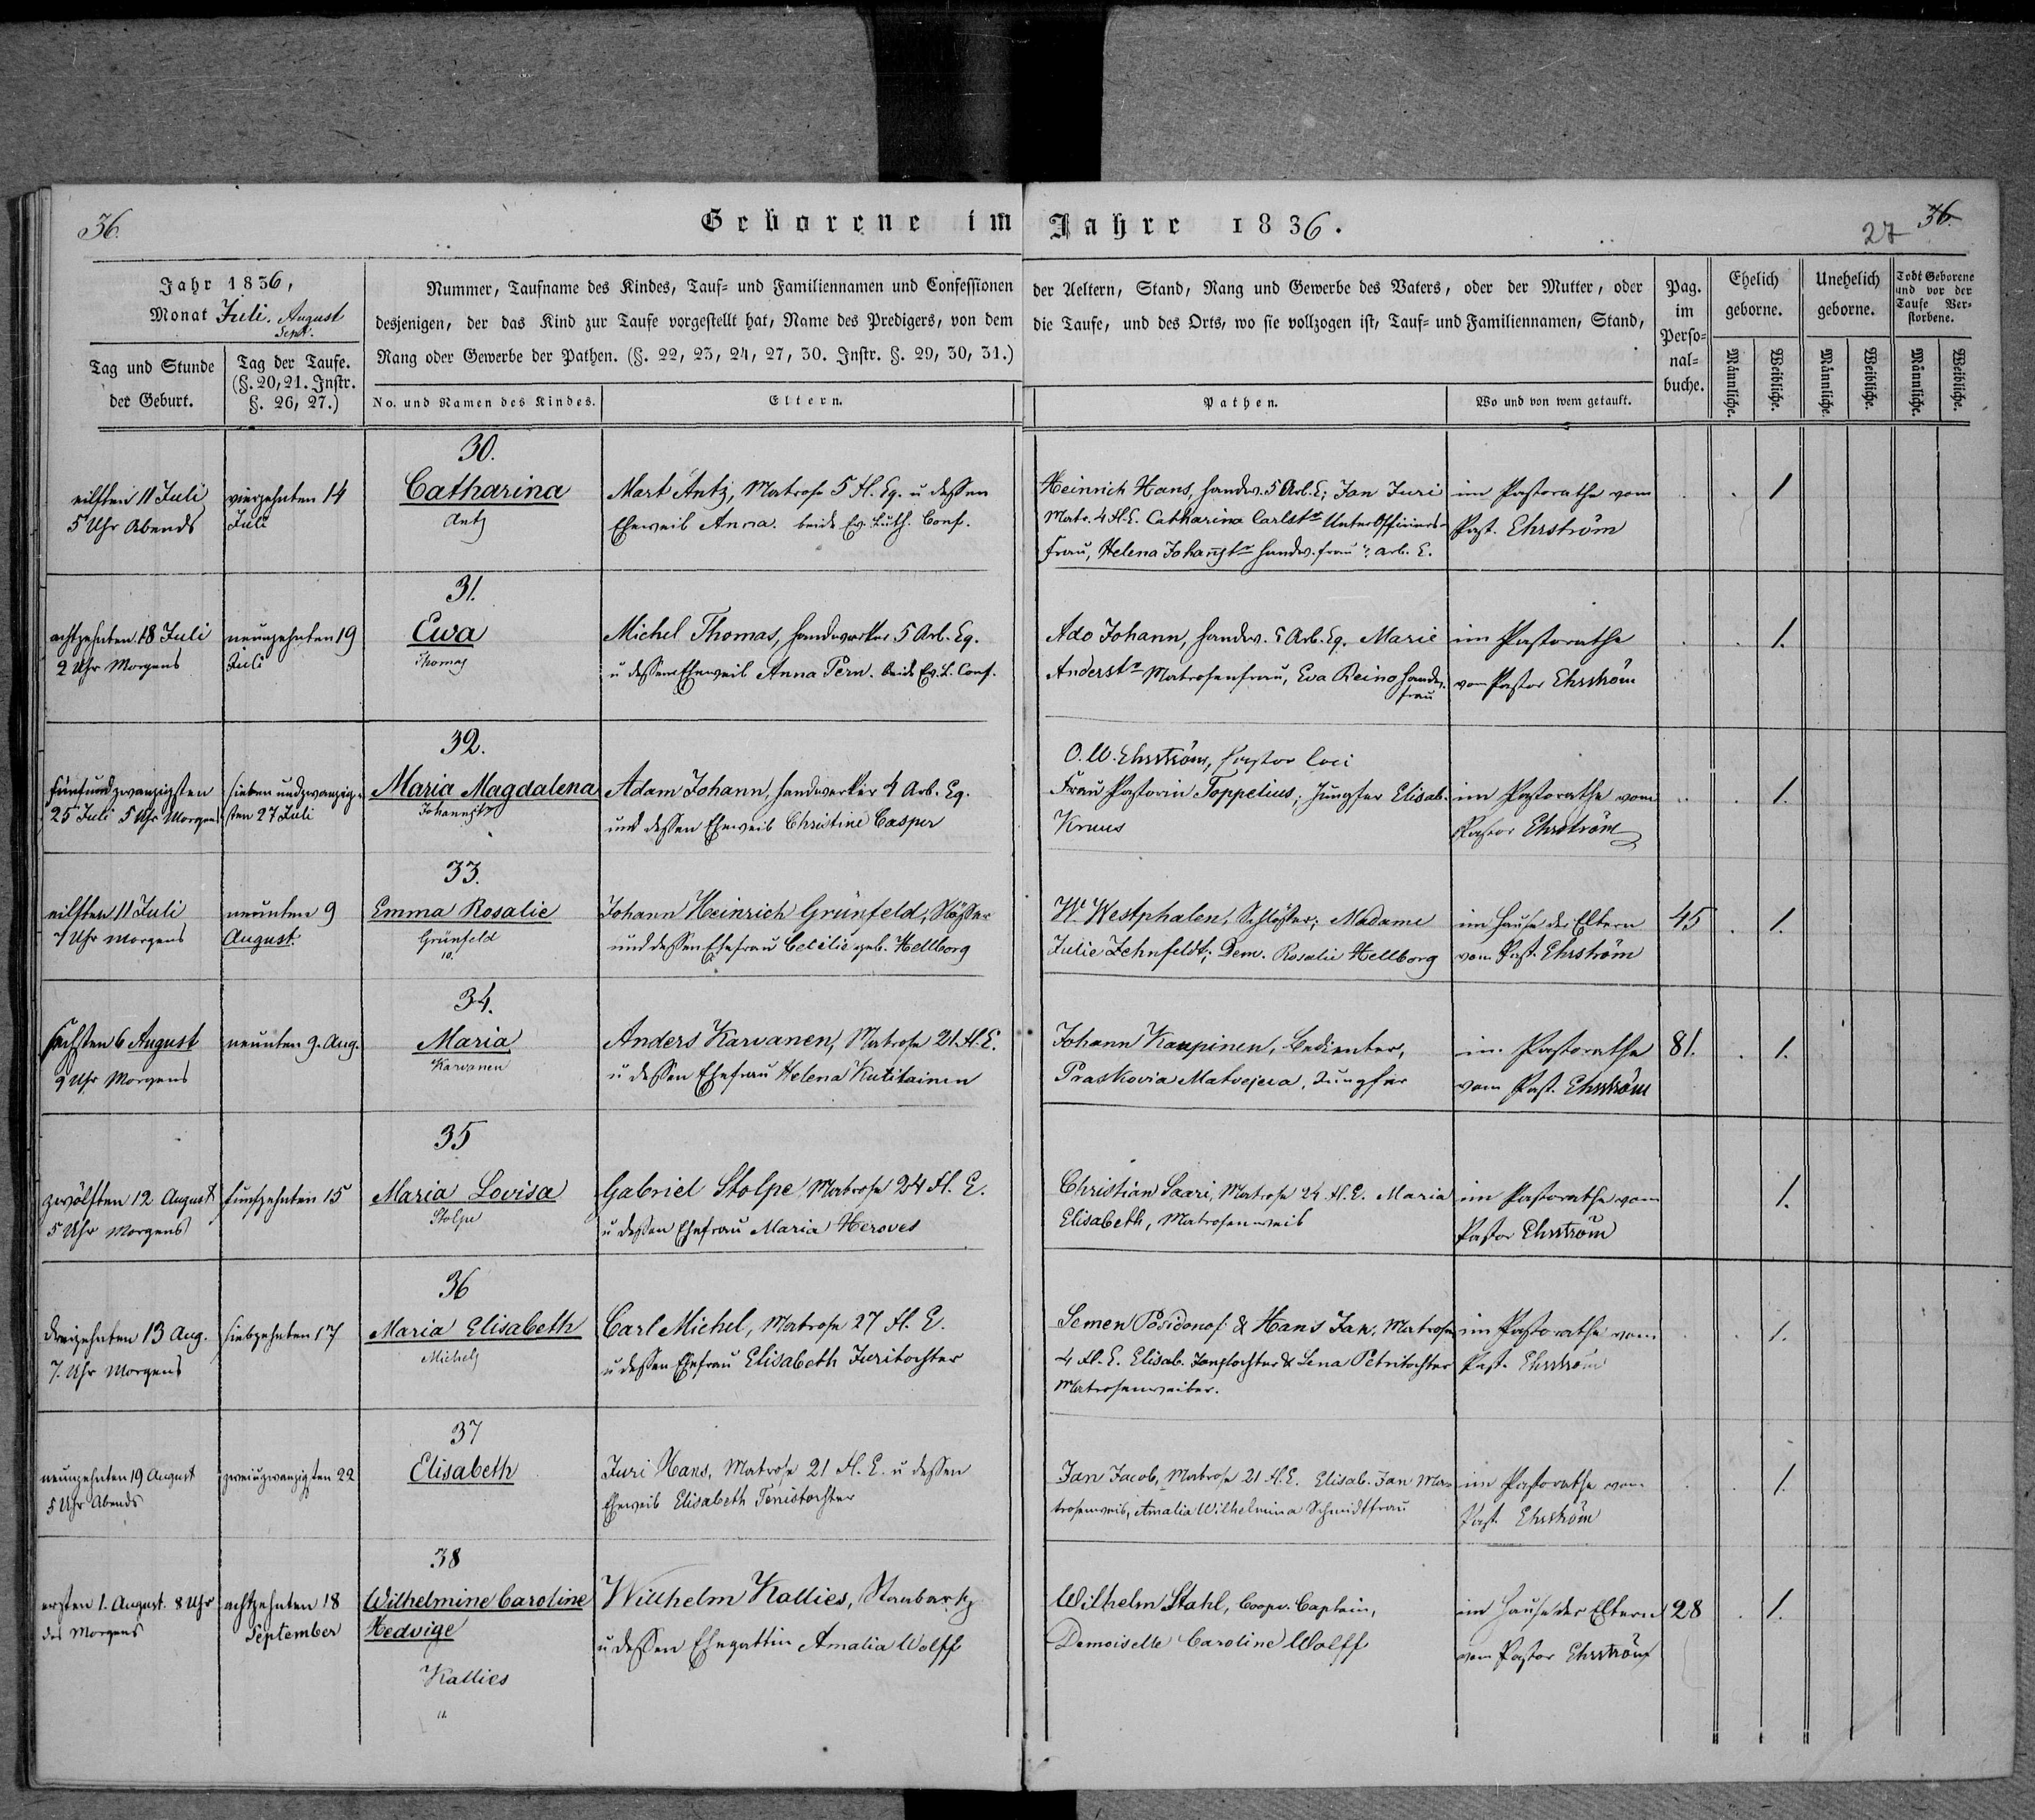 36.
Geborene im Jahre 1836.
36.
27
Jahr 1836,
Monat Juli. August
Sept.
Tag und Stunde
der Geburt.
Tag der Taufe.
(§. 20, 21. Instr.
§. 26, 27.)
Nummer, Taufname des Kindes, Tauf- und Familiennamen und Confessionen der Aeltern, Stand, Rang und Gewerbe des Vaters, oder der Mutter, oder
desjenigen, der das Kind zur Taufe vorgestellt hat, Name des Predigers, von dem die Taufe, und des Orts, wo sie vollzogen ist, Tauf- und Familiennamen, Stand,
Rang oder Gewerbe der Pathen. (§. 22, 23, 24, 27, 30. Instr. §. 29, 30, 31.)
No. und Namen des Kindes.
Eltern.
Pathen.
Wo und von wem getauft.
Pag.
im
Perso=
nal=
buche.
Ehelich
geborne.
Unehelich
geborne.
Todt Geborene
und vor der
Taufe Ver=
storbene.
Männliche.
Weibliche.
Männliche.
Weibliche.
Männliche.
Weibliche.
30.
eilften 11 Juli
5 Uhr Abends
vierzehnten 14
Juli
Catharina
Antz
Mart Antz, Matrose 5 Fl. Eq. u dessen
Eheweib Anna. beide Ev. Luth. Conf.
Heinrich Hans, Handw. 5 Arb. E; Jan Juri
Matr. 4 Fl. E. Catharina Carlstr Unter Officiers-
frau, Helena Johanstr Handw. frau 2 Arb. E.
im Pastorathe vom
Past. Ehrström
1
31.
achtzehnten 18 Juli
2 Uhr Morgens
neunzehnten 19
Juli
Ewa
Thomas
Michel Thomas, Handwerker 5 Arb. Eq.
u dessen Eheweib Anna Pern. beide Ev. L. Conf.
Ado Johann, Handw. 5 Arb. Eq. Marie
Anderstr Matrosenfrau, Eva Reino Handw.
frau
im Pastorathe
vom Pastor Ehrström
1.
32.
fünfundzwanzigsten
25 Juli 5 Uhr Morgens
siebenundzwanzig-
sten 27 Juli
Maria Magdalena
Johannstr
Adam Johann, Handwerker 4 Arb. Eq.
und dessen Eheweib Christine Casper
O. W. Ehrström, Pastor loci
Frau Pastorin Toppelius; Jungfer Elisab.
Kruus
im Pastorathe vom
Pastor Ehrström
1.
33.
eilften 11 Juli
7 Uhr Morgens
neunten 9
August.
Emma Rosalie
Grünfeld
10.
Johann Heinrich Grünfeld, Schlosser
und dessen Ehefrau Cecilie geb. Hellborg
W. Westphalen, Schlosser; Madame
Julie Zehnfeldt; Dem. Rosalie Hellborg
im Hause der Eltern
vom Past. Ehrström
45
1.
34.
sechsten 6 August
9 Uhr Morgens
neunten 9. Aug.
Maria
Karvanen
Anders Karvanen, Matrose 21 Fl. E.
u dessen Ehefrau Helena Kutitainen
Johann Kaupinen, Bedienter,
Praskovia Matvejeva, Jungfer
im Pastorathe
vom Past. Ehrström
81.
1.
35
zwölften 12 August
5 Uhr Morgens
funfzehnten 15
Maria Lovisa
Stolpe
Gabriel Stolpe, Matrose 24 Fl. E.
u dessen Ehefrau Maria Heroves
Christian Saari, Matrose 24 Fl. E. Maria
Elisabeth, Matrosenweib
im Pastorathe vom
Pastor Ehrström
1.
36
dreizehnten 13 Aug.
7. Uhr Morgens
siebzehnten 17
Maria Elisabeth
Michels
Carl Michel, Matrose 27 Fl. E.
u dessen Ehefrau Elisabeth Juritochter
Semen Posidonof & Hans Jan, Matrosen
4 Fl. E. Elisab. Janstochter & Lena Petritochter
Matrosenweiber.
im Pastorathe vom
Past. Ehrström
1.
37
neunzehnten 19 August
5 Uhr Abends
zweiuzwanzigsten 22
Elisabeth
Juri Hans, Matrose 21 Fl. E. u dessen
Eheweib Elisabeth Tenistochter
Jan Jacob, Matrose 21 Fl. E. Elisab. Jan Ma-
trosenweib, Amalia Wilhelmina Schmidtfrau
im Pastorathe vom
Past. Ehrström
1.
38
ersten 1. August. 8 Uhr
des Morgens
achtzehnten 18
September
Wilhelmine Caroline
Hedvige
Kallies
Willhelm Kallies,
u dessen Ehegattin Amalia Wolff
Wilhelm Stahl, Coopv. Captain,
Demoiselle Caroline Wolff
im Hause der Eltern
vom Pastor Ehrström
28
1.